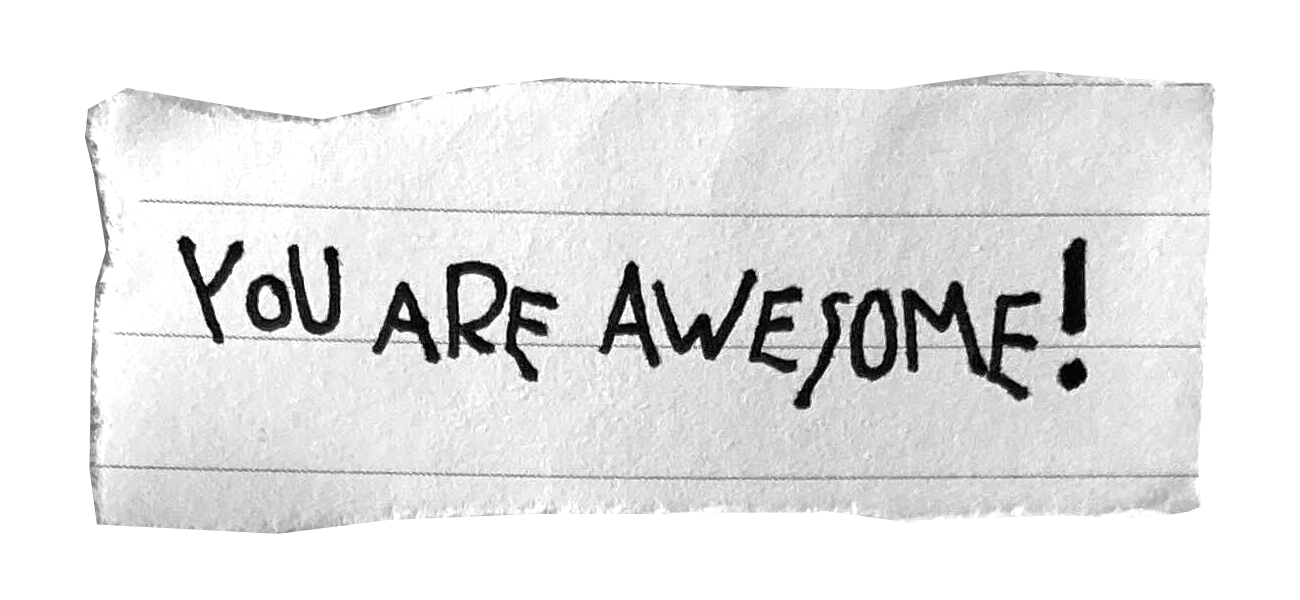 YOU ARE AWESOME!